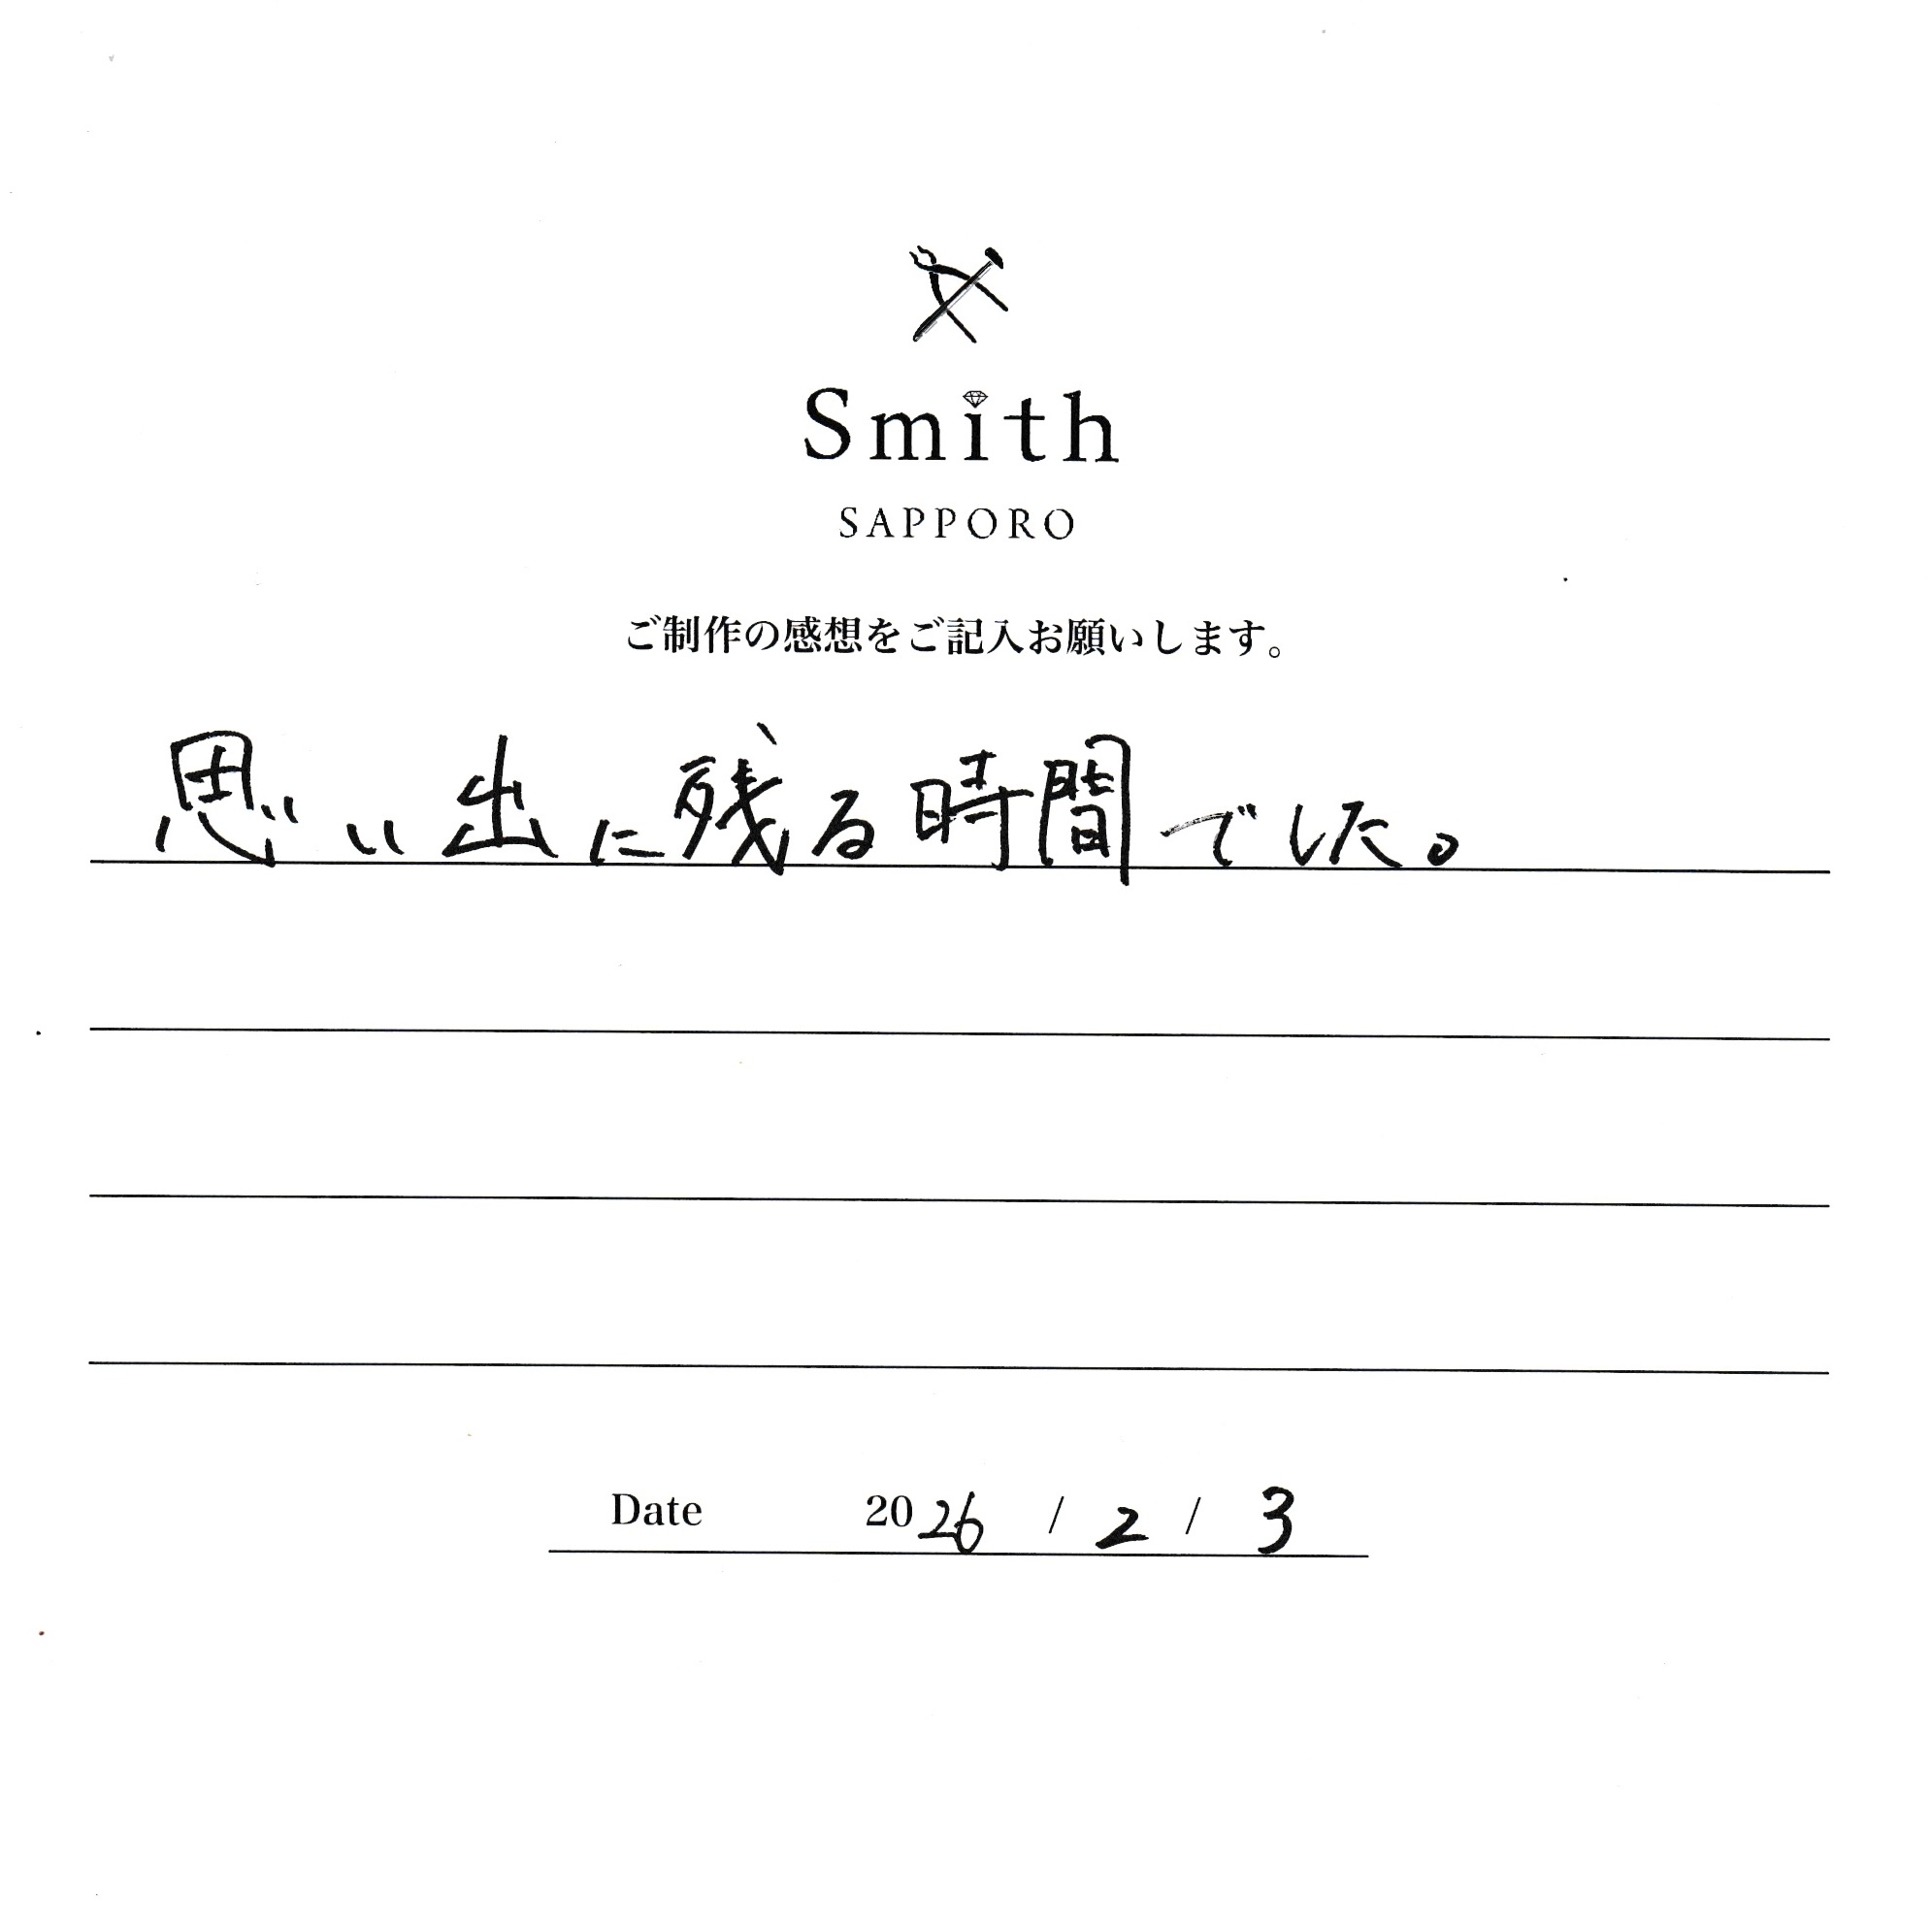 Smith
SAPPORO
ご制作の感想をご記入お願いします。
思い出に残る時間でした。
Date 2026 / 2 / 3